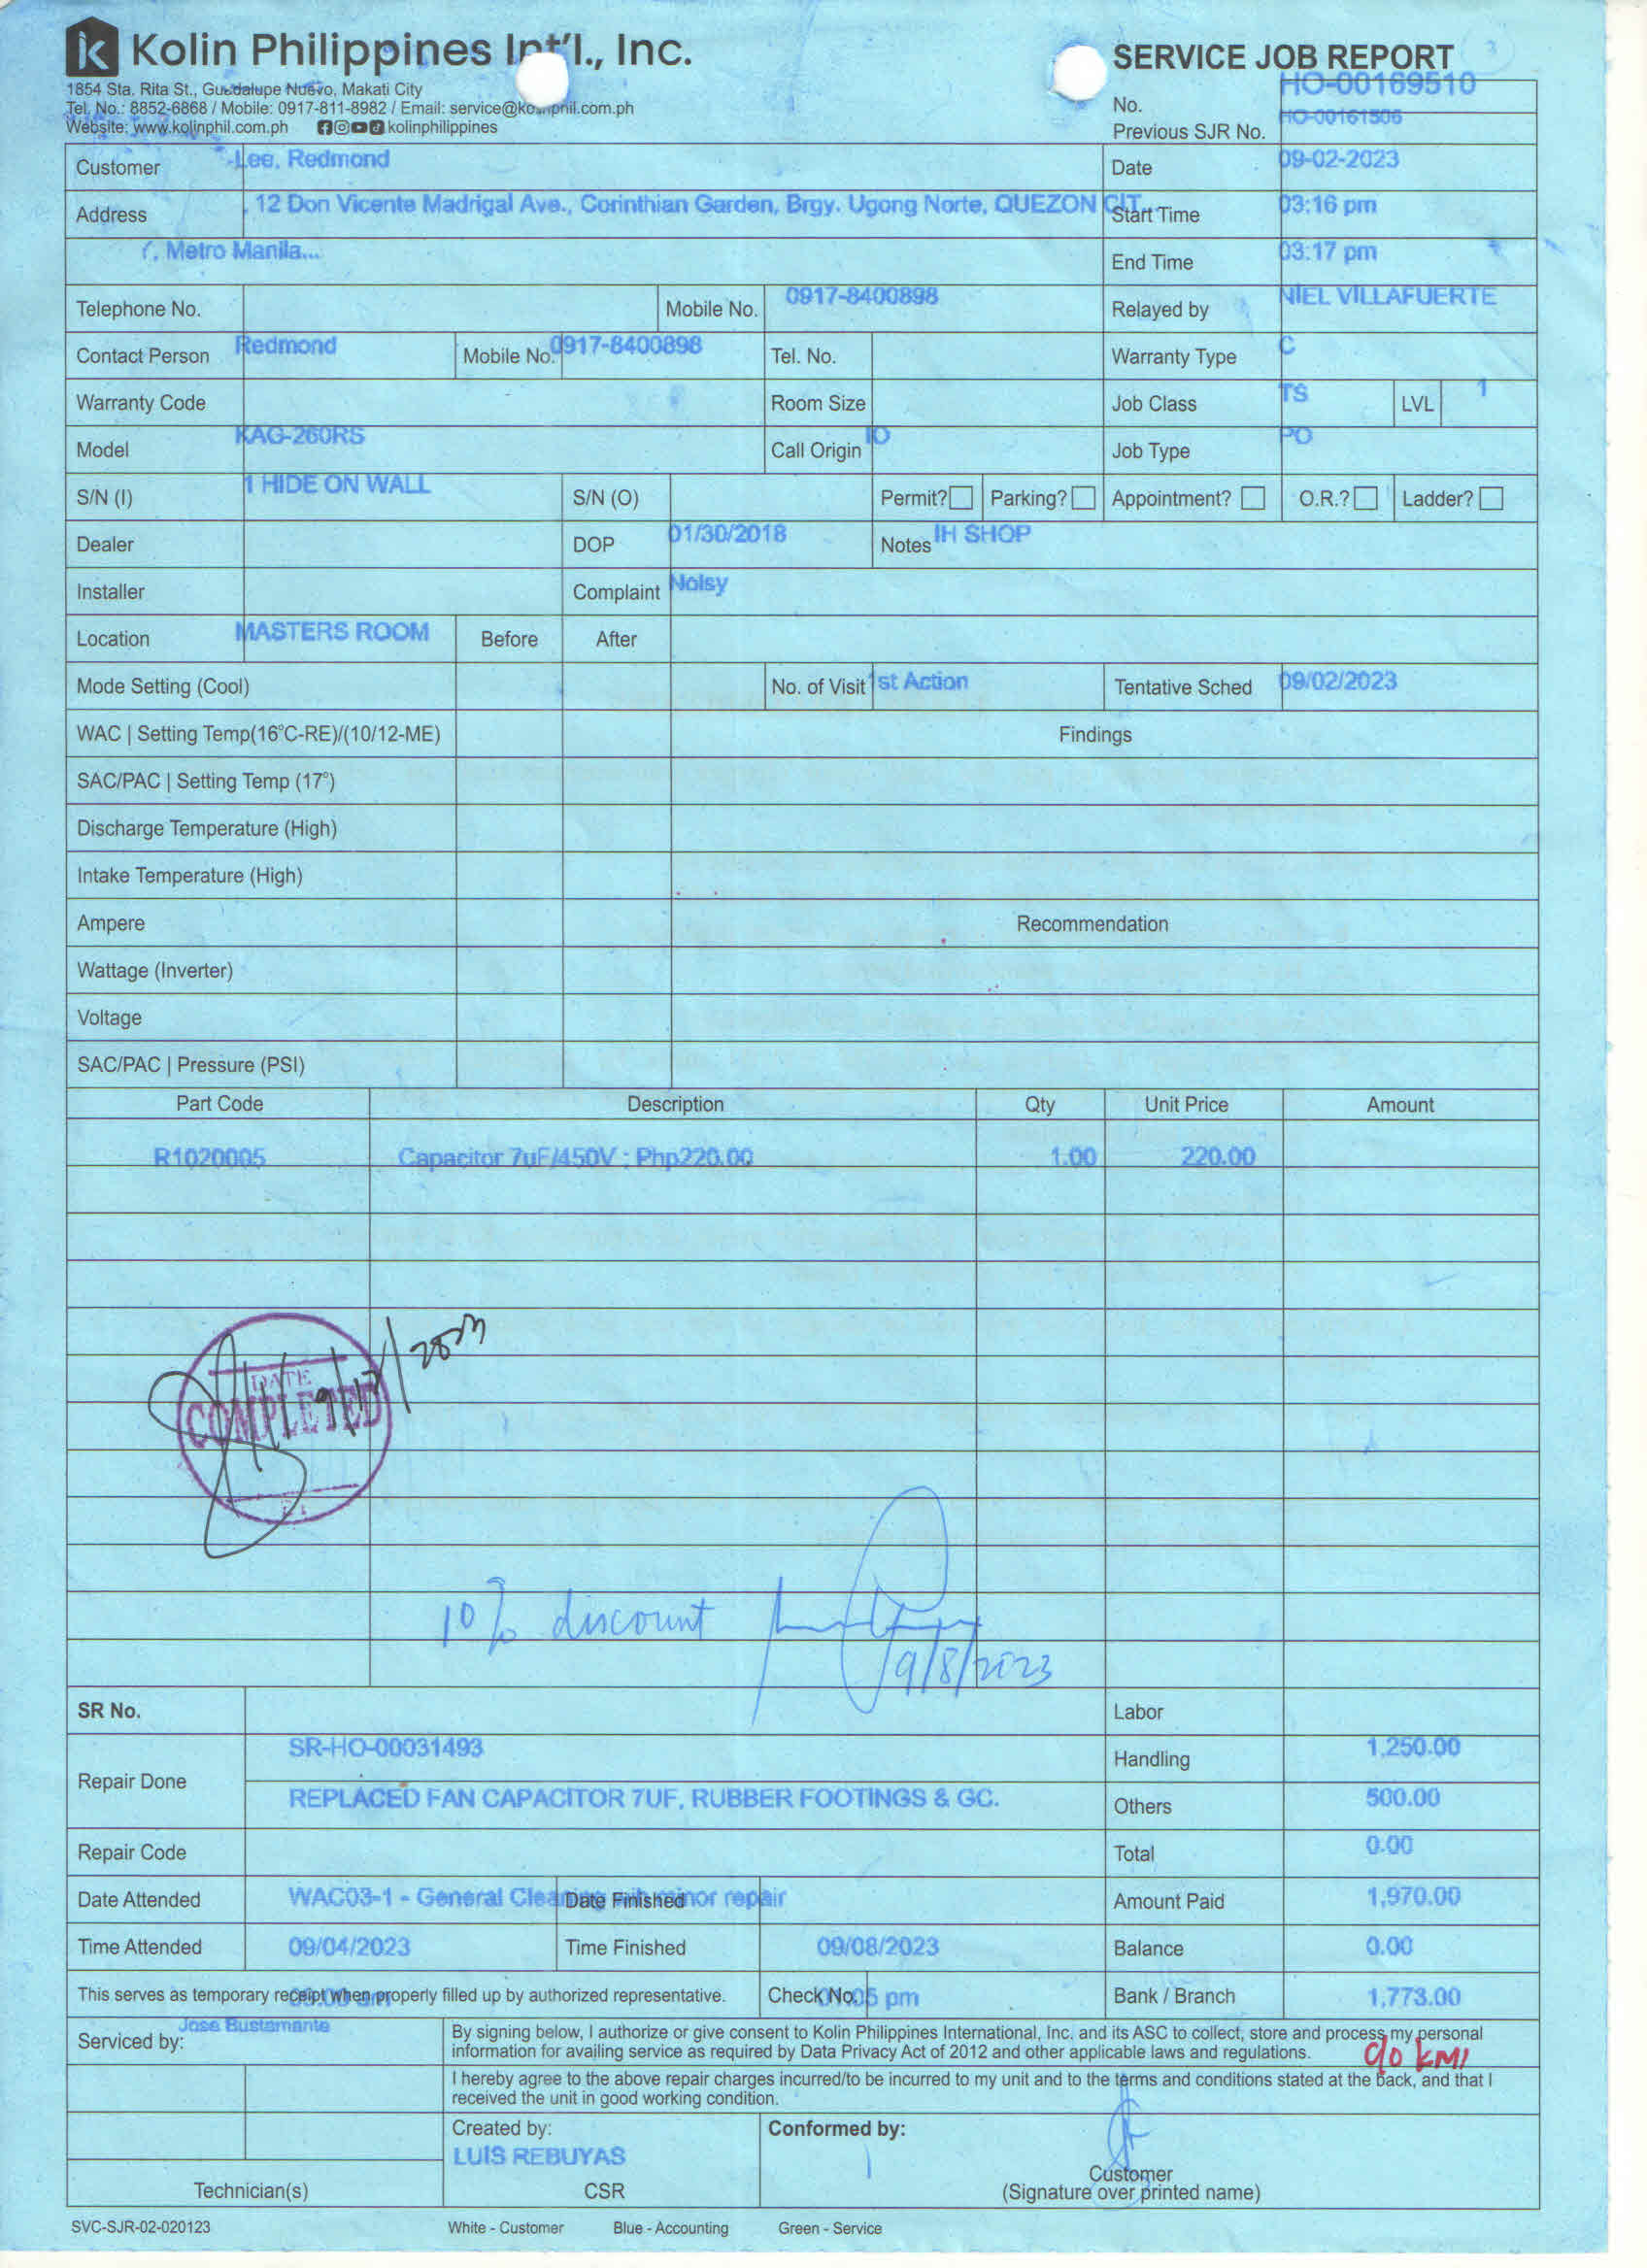 Kolin Philippines Int'l., Inc.
SERVICE JOB REPORT
1854 Sta. Rita St., Guadalupe Nuevo, Makati City
Tel. No.: 8852-6868 / Mobile: 0917-811-8982 / Email: service@kolinphil.com.ph
Website: www.kolinphil.com.ph kolinphilippines
No. HO-00169510
Previous SJR No. HO-00161506
Customer Lee, Redmond Date 09-02-2023
Address 12 Don Vicente Madrigal Ave., Corinthian Garden, Brgy. Ugong Norte, QUEZON CIT Start Time 03:16 pm
Y, Metro Manila... End Time 03:17 pm
Telephone No. Mobile No. 0917-8400898 Relayed by NIEL VILLAFUERTE
Contact Person Redmond Mobile No. 0917-8400898 Tel. No. Warranty Type C
Warranty Code Room Size Job Class TS LVL 1
Model KAG-260RS Call Origin IO Job Type PO
S/N (I) 1 HIDE ON WALL S/N (O) Permit? Parking? Appointment? O.R.? Ladder?
Dealer DOP 01/30/2018 Notes IH SHOP
Installer Complaint Noisy
Location MASTERS ROOM Before After
Mode Setting (Cool) No. of Visit 1st Action Tentative Sched 09/02/2023
WAC | Setting Temp(16°C-RE)/(10/12-ME) Findings
SAC/PAC | Setting Temp (17°)
Discharge Temperature (High)
Intake Temperature (High)
Ampere Recommendation
Wattage (Inverter)
Voltage
SAC/PAC | Pressure (PSI)
Part Code Description Qty Unit Price Amount
R1020005 Capacitor 7uF/450V : Php220.00 1.00 220.00
DATE
COMPLETED
10% discount
9/8/2023
SR No. Labor
SR-HO-00031493 Handling 1,250.00
Repair Done
REPLACED FAN CAPACITOR 7UF, RUBBER FOOTINGS & GC. Others 500.00
Repair Code Total 0.00
Date Attended WAC03-1 - General Cleaning with minor repair Date Finished Amount Paid 1,970.00
Time Attended 09/04/2023 Time Finished 09/08/2023 Balance 0.00
This serves as temporary receipt when properly filled up by authorized representative. Check No. pm Bank / Branch 1,773.00
Serviced by: Jose Bustamante
By signing below, I authorize or give consent to Kolin Philippines International, Inc. and its ASC to collect, store and process my personal
information for availing service as required by Data Privacy Act of 2012 and other applicable laws and regulations.
c/o KMI
I hereby agree to the above repair charges incurred/to be incurred to my unit and to the terms and conditions stated at the back, and that I
received the unit in good working condition.
Created by: Conformed by:
LUIS REBUYAS
Customer
Technician(s) CSR (Signature over printed name)
SVC-SJR-02-020123 White - Customer Blue - Accounting Green - Service